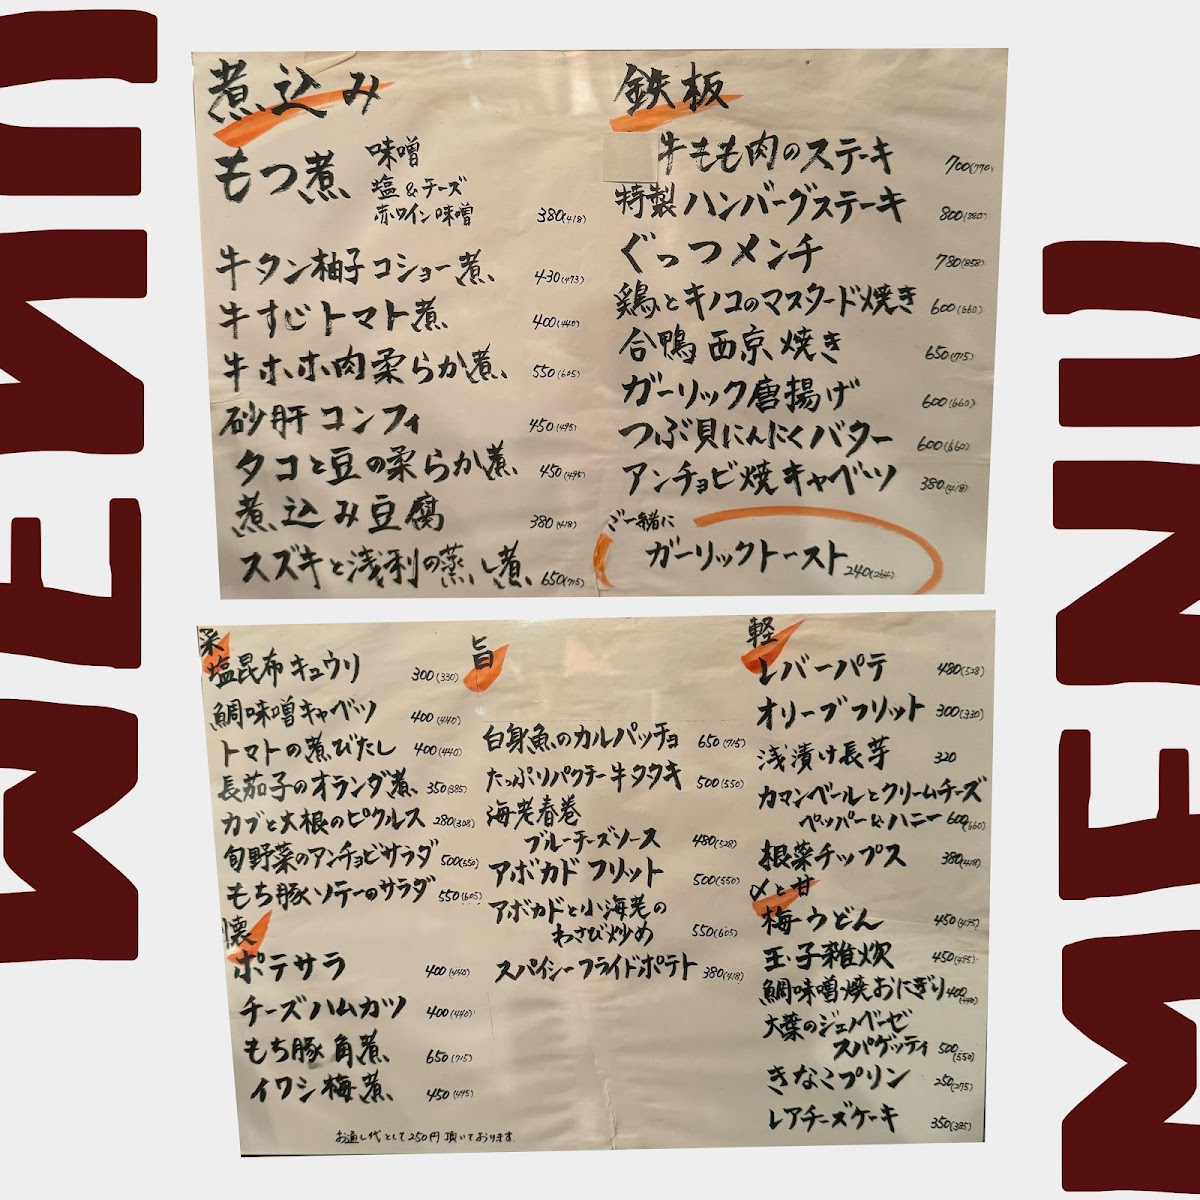 MENU
煮込み
もつ煮 味噌
塩&チーズ
赤ワイン味噌 380(418)
牛タン柚子コショー煮 430(473)
牛すじトマト煮 400(440)
牛ホホ肉柔らか煮 550(605)
砂肝コンフィ 450(495)
タコと豆の柔らか煮 450(495)
煮込み豆腐 380(418)
スズキと浅利の蒸し煮 650(715)
鉄板
牛もも肉のステーキ 700(770)
特製ハンバーグステーキ 800(880)
ぐっつメンチ 780(858)
鶏とキノコのマスタード焼き 600(660)
合鴨西京焼き 650(715)
ガーリック唐揚げ 600(660)
つぶ貝にんにくバター 600(660)
アンチョビ焼キャベツ 380(418)
ご一緒に
ガーリックトースト 240(264)
菜
塩昆布キュウリ 300(330)
鯛味噌キャベツ 400(440)
トマトの煮びたし 400(440)
長茄子のオランダ煮 350(385)
カブと大根のピクルス 280(308)
旬野菜のアンチョビサラダ 500(550)
もち豚ソテーのサラダ 550(605)
懐
ポテサラ 400(440)
チーズハムカツ 400(440)
もち豚角煮 650(715)
イワシ梅煮 450(495)
旨
白身魚のカルパッチョ 650(715)
たっぷりパクチー牛タタキ 500(550)
海老春巻
ブルーチーズソース 480(528)
アボカドフリット 500(550)
アボカドと小海老の
わさび炒め 550(605)
スパイシーフライドポテト 380(418)
軽
レバーパテ 480(528)
オリーブフリット 300(330)
浅漬け長芋 320
カマンベールとクリームチーズ
ペッパー&ハニー 600(660)
根菜チップス 380(418)
〆と甘
梅うどん 450(495)
玉子雑炊 450(495)
鯛味噌焼おにぎり 400(440)
大葉のジェノベーゼ
スパゲッティ 500(550)
きなこプリン 250(275)
レアチーズケーキ 350(385)
お通し代として250円頂いております。
MENU